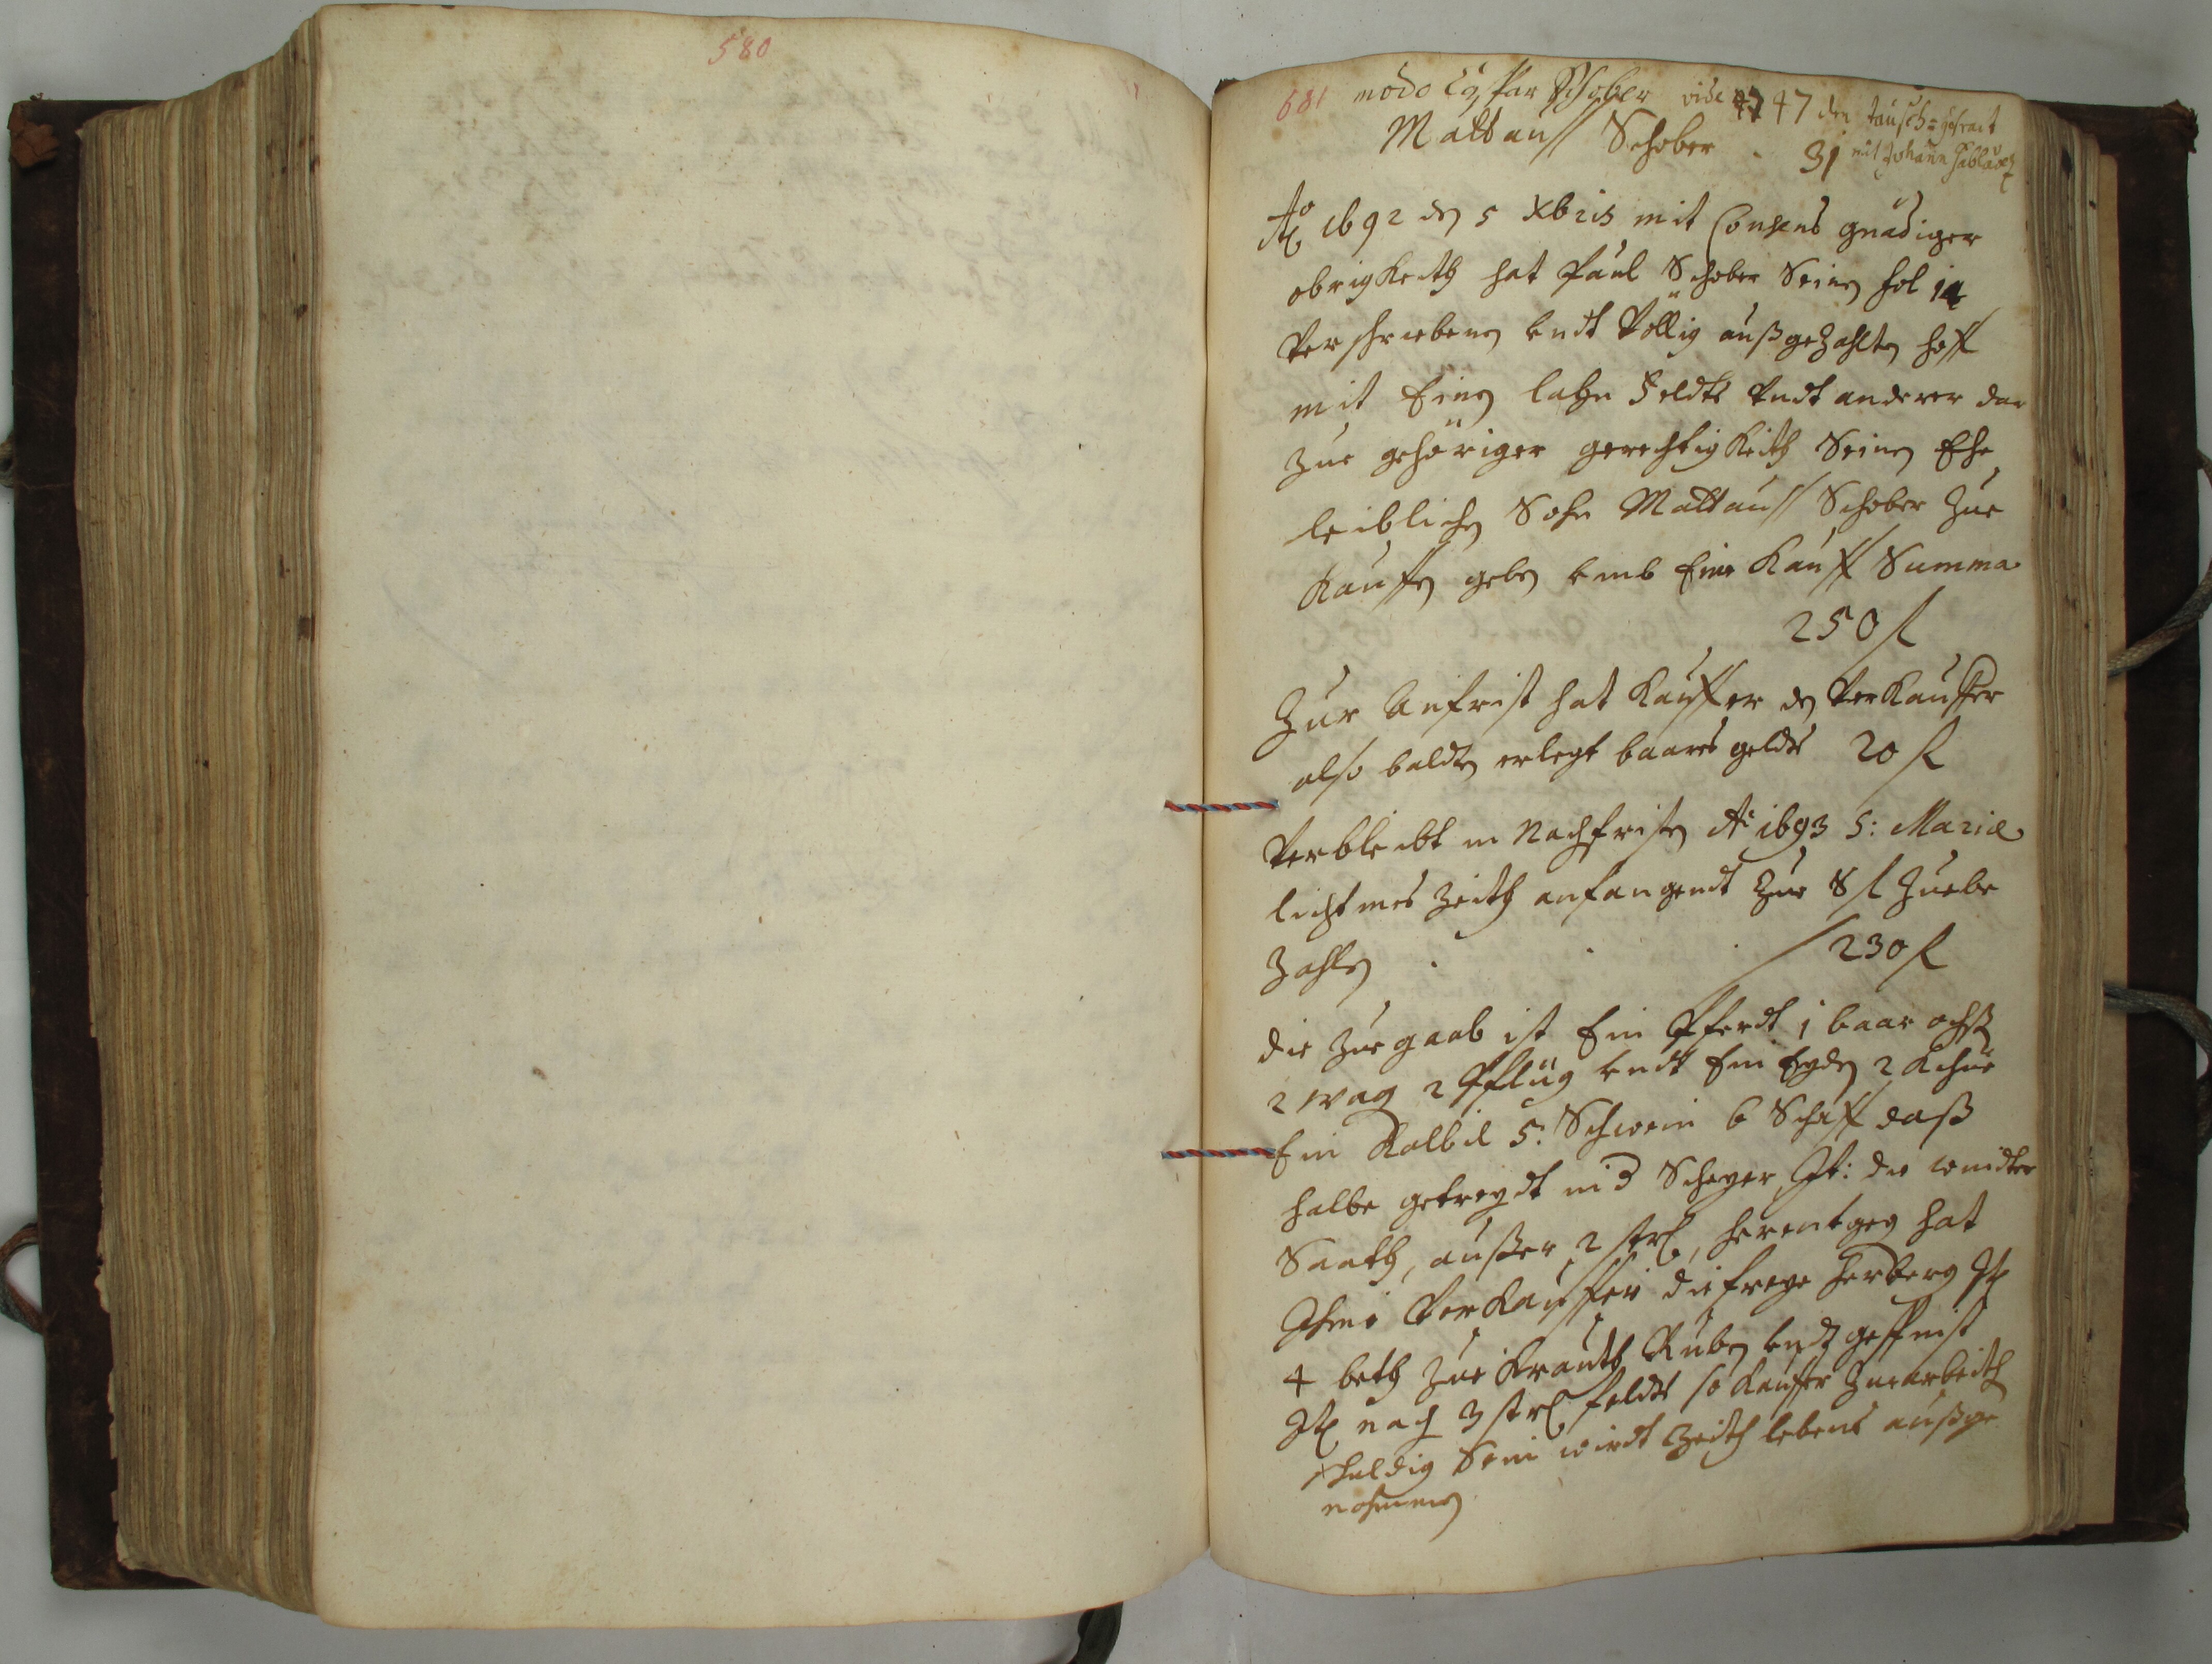 580
681 modo Caspar Schober vide 47 den tausch=
Mattauss Schober . 31 mit Johann
Ao 1692 den 5 Xbris mit Consens gnädiger
obrigkeith hat Paul Schober Seinen fol 14
Verschriebenen undt Völlig außgezahlten hoff
mit Einen lahn Feldts Undt anderer dar
zue gehöriger gerechtigkeith Seinen Ehe
leiblichen Sohn Mattauss Schober Zue
Kauffen geben umb Eine Kauff Summa
250 fl
Zur Anfrist hat Kauffer den Verkauffer
also baldten erlegt baares geldts 20 fl
Verbleibt in Nachfristen Ao 1693 S: Mariæ
lichtmes Zeith anfangendt Zue 8 fl Zuebe
Zahlen . . . 230 fl
die Zuegaab ist Ein Pferdt 1 baar ochsen
2 wag 2 Pflüg undt Ein Eyden 2 Kihue
Ein Kalbel 5: Schwein 6 Schaff daß
halbe getreydt in 3 Scheyer It: die windter
Saath, ausser 2 strl, herentgeg hat
Ihme Verkauffer die freye herberg Itl
4 beth zue Krauth Ruben undt
Itl nach 3 strl feldts so Kauffer Zuearbeith
schuldig Sein wirdt Zeith lebens außge
nohmmen